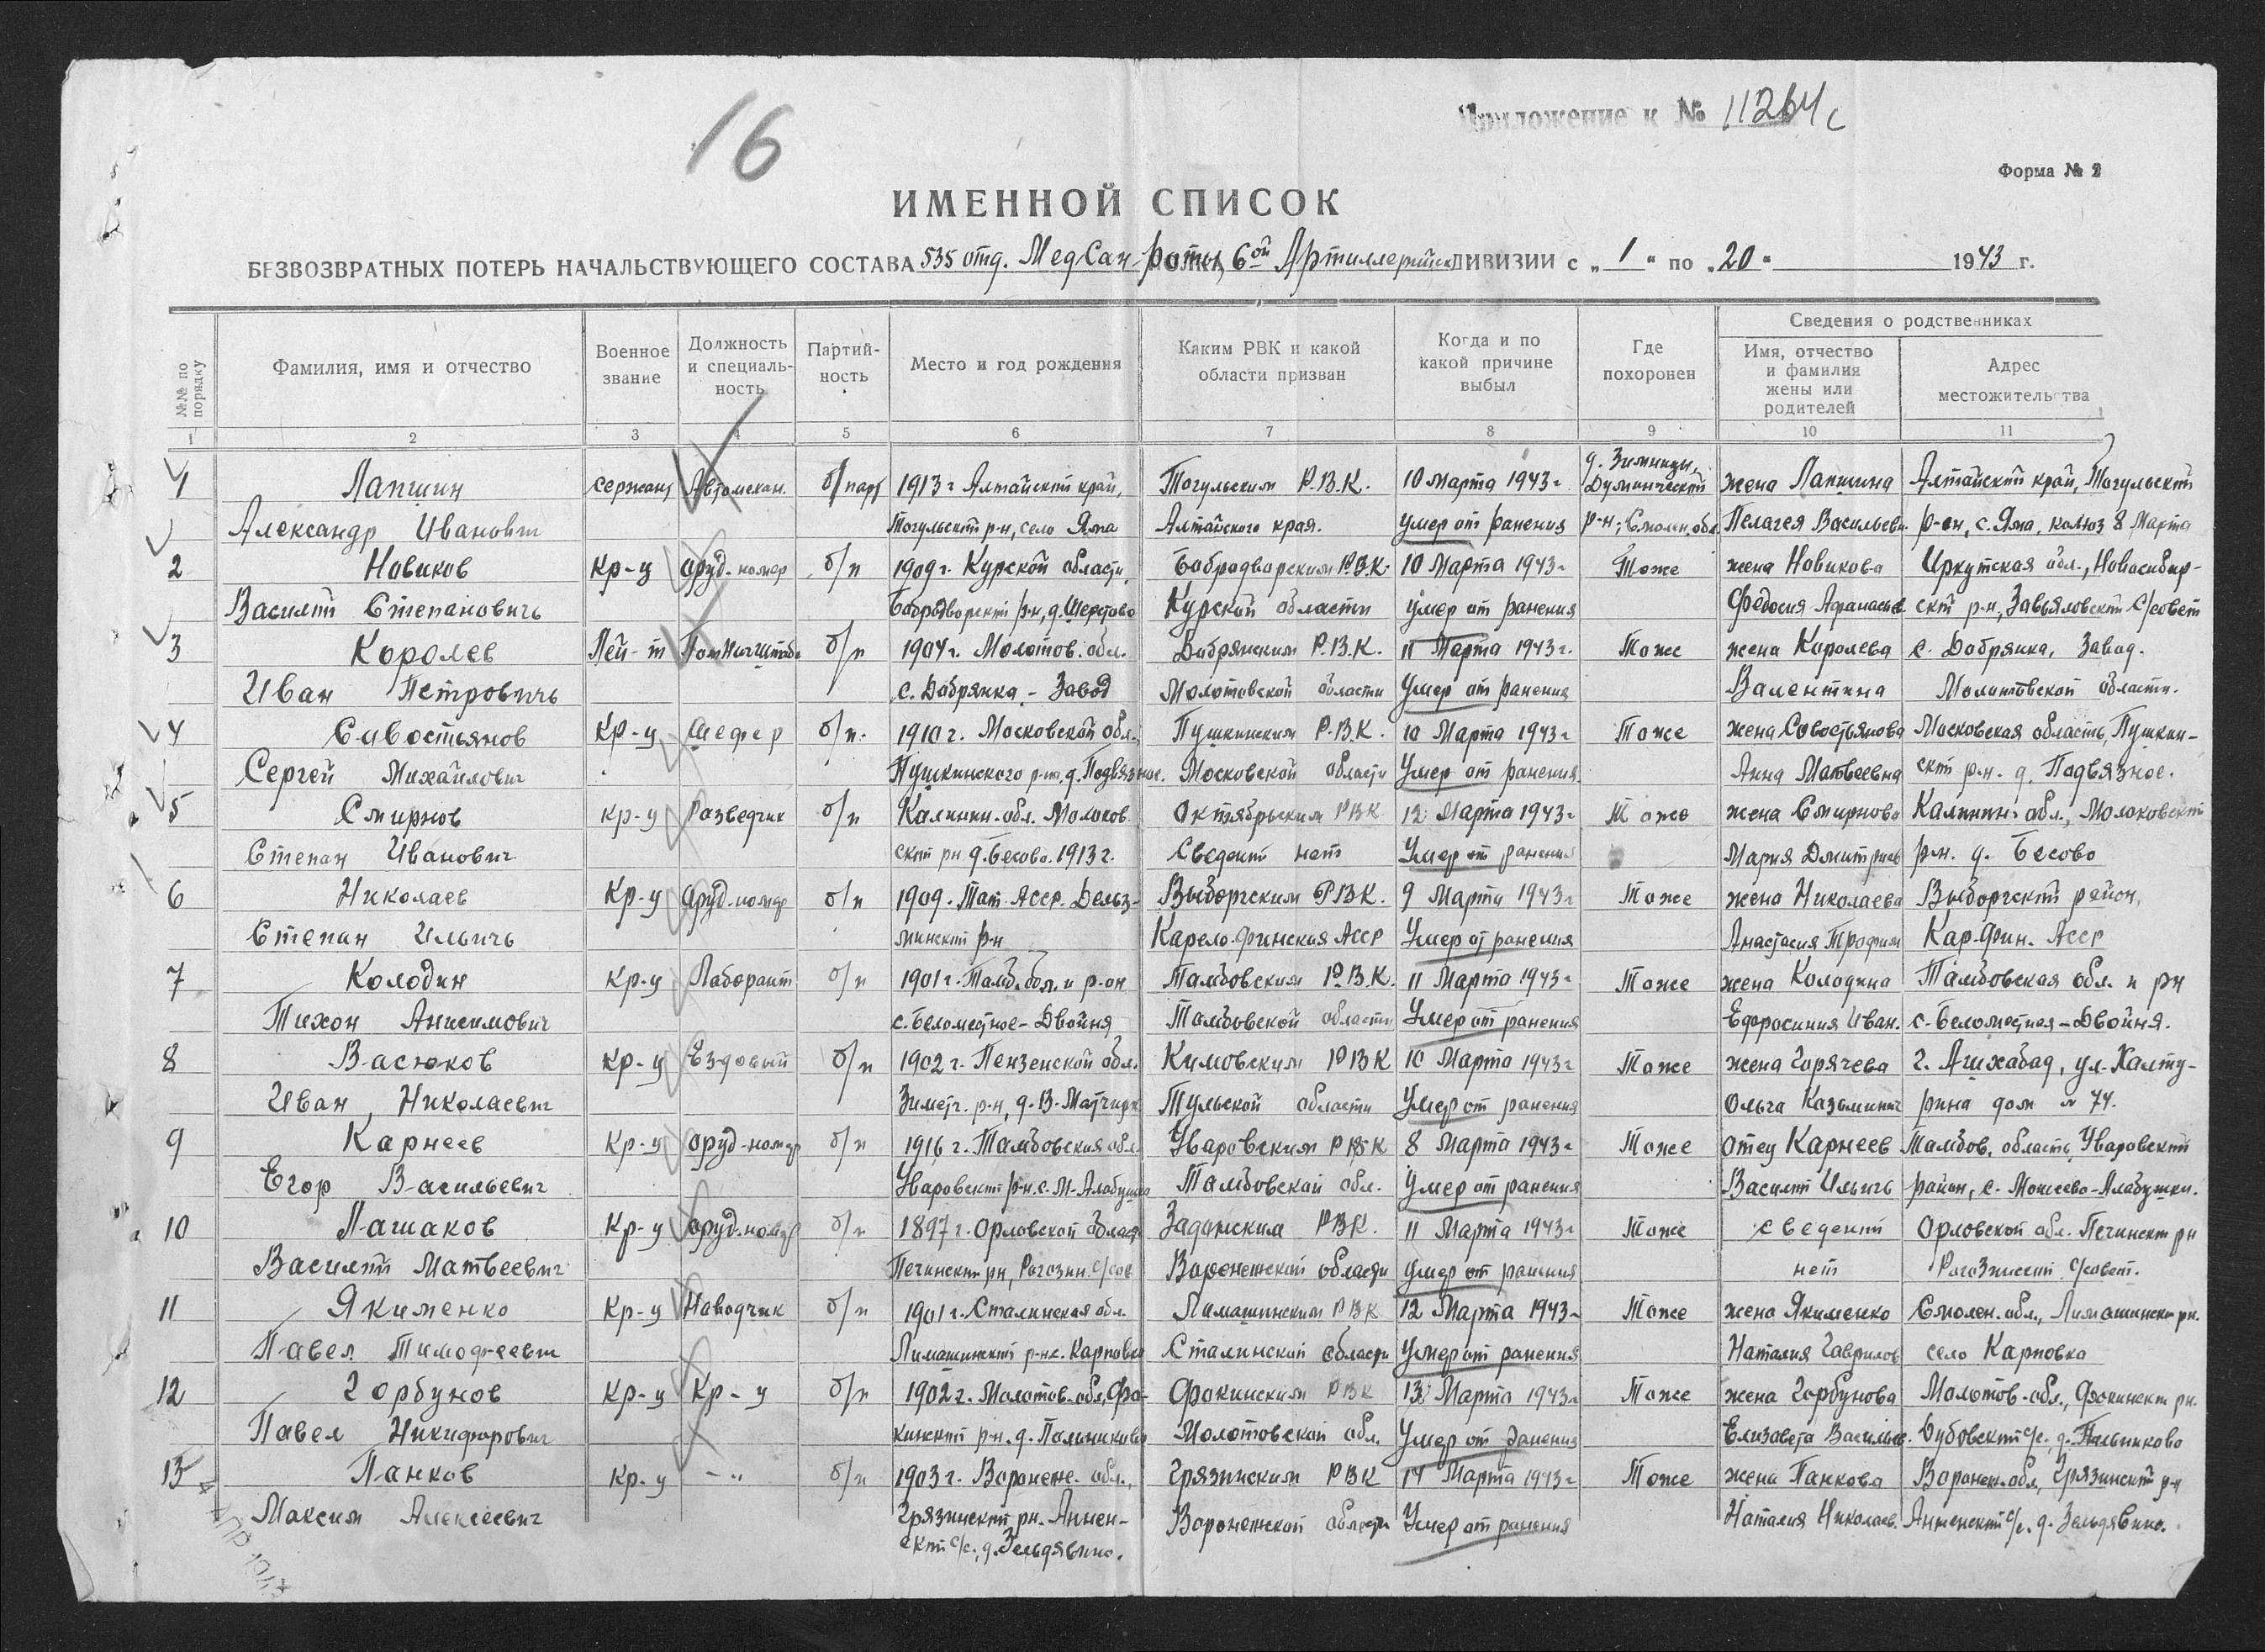 16
Приложение к № 11264с
Форма № 2
ИМЕННОЙ СПИСОК
БЕЗВОЗВРАТНЫХ ПОТЕРЬ НАЧАЛЬСТВУЮЩЕГО СОСТАВА 535 отд. МедСан-роты, 6ой Артиллерийск ДИВИЗИИ с „ 1 " по „ 20 " 1943 г.
№№ по порядку
Фамилия, имя и отчество
Военное звание
Должность и специальность
Партийность
Место и год рождения
Каким РВК и какой области призван
Когда и по какой причине выбыл
Где похоронен
Сведения о родственниках
Имя, отчество и фамилия жены или родителей
Адрес местожительства
1 2 3 4 5 6 7 8 9 10 11
1 Лапшин сержант Автомехан. б/парт 1913 г Алтайский край, Тогульским Р.В.К. 10 марта 1943 г д. Зимницы, Думинический жена Лапшина Алтайский край, Тогульский
Александр Иванович Тогульский р-н, село Яма Алтайского края. умер от ранения р-н, Смолен. обл. Пелагея Васильевн. р-он, с. Яма, колхоз 8 Марта
2 Новиков Кр-ц оруд-номер б/п 1909 г. Курской области Бобродворским Р.В.К. 10 Марта 1943 г Тоже жена Новикова Иркутская обл., Новосибир-
Василий Степановичь Бобродворский р-н, д. Шерстово Курской области умер от ранения Федосия Афанасьев ский р-н, Завьяловский С/совет
3 Королев Лей-т ПомНачШтаба б/п 1904 г. Молотов. обл. Добрянским Р.В.К. 11 Марта 1943 г. Тоже жена Королева с. Добрянка, Завод.
Иван Петровичь с. Добрянка - Завод Молотовской области Умер от ранения Валентина Молотовской области.
4 Савостьянов Кр-ц Шофер б/п. 1910 г. Московской обл. Пушкинским Р.В.К. 10 Марта 1943 г Тоже жена Савостьянова Московская область, Пушкин-
Сергей Михайлович Пушкинского р-на, д. Подвязное. Московской области Умер от ранения Анна Матвеевна ский р-н. д. Подвязное.
5 Смирнов кр-ц Разведчик б/п Калинин. обл. Молоков Октябрьским РВК 12 Марта 1943 г Тоже жена Смирнова Калинин. обл., Молоковский
Степан Иванович ский рн д. Бесово. 1913 г. Сведений нет Умер от ранения Мария Дмитриев р-н. д. Бесово
6 Николаев Кр-ц Оруд-номер б/п 1909. Тат. Асср. Выборгским РВК. 9 Марта 1943 г Тоже жена Николаева Выборгский район,
Степан Ильичь р-н Карело-Финская Асср Умер от ранения Анастасия Трофим Кар. Фин. Асср
7 Колодин Кр-ц Лаборант б/п 1901 г. Тамб. обл. и р-он Тамбовским Р.В.К. 11 Марта 1943 г Тоже жена Колодина Тамбовская обл. и рн
Тихон Анисимович с. Беломестное-Двойня Тамбовской области Умер от ранения Ефросиния Иван. с. Беломестная-Двойня.
8 Васюков Кр-ц Ездовый б/п 1902 г. Пензенской обл. Кимовским РВК 10 Марта 1943 г Тоже жена Горячева г. Ашхабад, ул. Халту-
Иван Николаевич Земетч. р-н, д. В-Матчерк Тульской области Умер от ранения Ольга Казьминич рина дом № 74.
9 Карнеев Кр-ц оруд-номер б/п 1916 г. Тамбовская обл. Уваровским РВК 8 Марта 1943 г Тоже отец Карнеев Тамбов. область, Уваровский
Егор Васильевич Уваровский р-н. с. М-Алабушка Тамбовской обл. Умер от ранения Василий Ильичь район, с. Моисеево-Алабушки.
10 Лашаков Кр-ц оруд-номер б/п 1897 г. Орловской област Задонским РВК. 11 Марта 1943 г Тоже сведений Орловской обл. рн
Василий Матвеевич рн, Рогозин. с/сов Воронежской области Умер от ранения нет Рогозинский с/совет.
11 Якименко Кр-ц Наводчик б/п 1901 г. Сталинская обл. Лимашинским РВК 12 Марта 1943 г Тоже жена Якименко Смолен. обл., Лимашинск рн.
Павел Тимофеевич Лимашинский р-н с. Карповка Сталинской области Умер от ранения Наталия Гаврилов село Карповка
12 Горбунов Кр-ц Кр-ц б/п 1902 г. Молотов. обл., Фо- Фокинским РВК 13 Марта 1943 г Тоже жена Горбунова Молотов. обл., Фокинский рн.
Павел Никифорович кинский р-н. д. Пальниково Молотовской обл. Умер от ранения Елизавета Васильев. Дубовский с/с., д. Пальниково
13 Панков Кр-ц -„- б/п 1903 г. Воронеж. обл., Грязинским РВК 14 Марта 1943 г Тоже жена Панкова Воронеж. обл, Грязинский р-н
Максим Алексеевич Грязинский рн. Аннен- Воронежской области Умер от ранения Наталия Николаев. Анненский с/с. д. Зельдявино.
ский с/с., д. Зельдявино.
4 АПР 1943